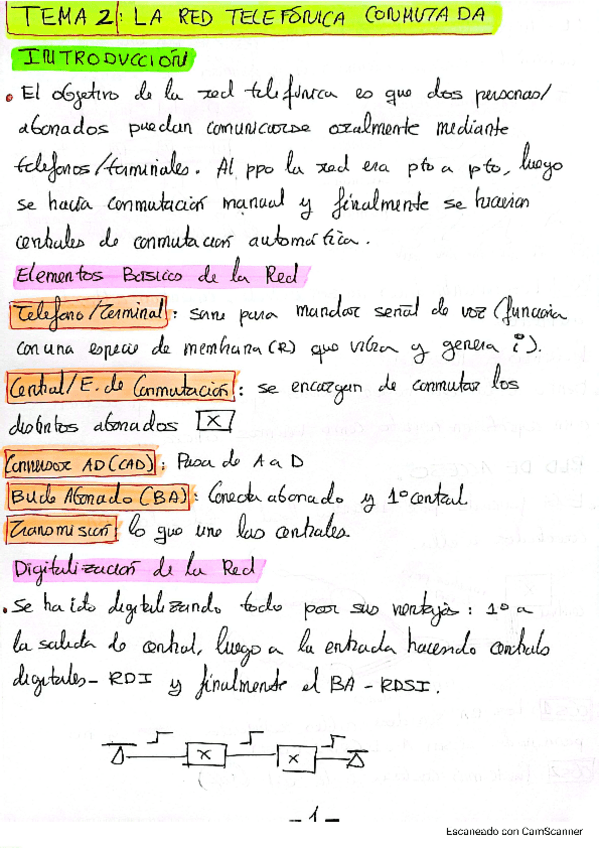 TEMA 2: LA RED TELEFÓNICA CONMUTADA
INTRODUCCIÓN
• El objetivo de la red telefónica es que dos personas/
abonados puedan comunicarse oralmente mediante
telefonos/terminales. Al ppo la red era pto a pto, luego
se hacía conmutación manual y finalmente se hicieron
centrales de conmutación automática.
Elementos Basicos de la Red
Telefono/Terminal: sirve para mandar señal de voz (funciona
con una especie de membrana (R) que vibra y genera i).
Central/E. de Conmutación: se encargan de conmutar los
distintos abonados X
Conversor AD (CAD): Pasa de A a D
Bucle Abonado (BA): Conecta abonado y 1º central
Transmisión: lo que une las centrales
Digitalización de la Red
• Se ha ido digitalizando todo por sus ventajas: 1º a
la salida de central, luego a la entrada haciendo centrales
digitales - RDI y finalmente el BA - RDSI.
X X
- 1 -
Escaneado con CamScanner